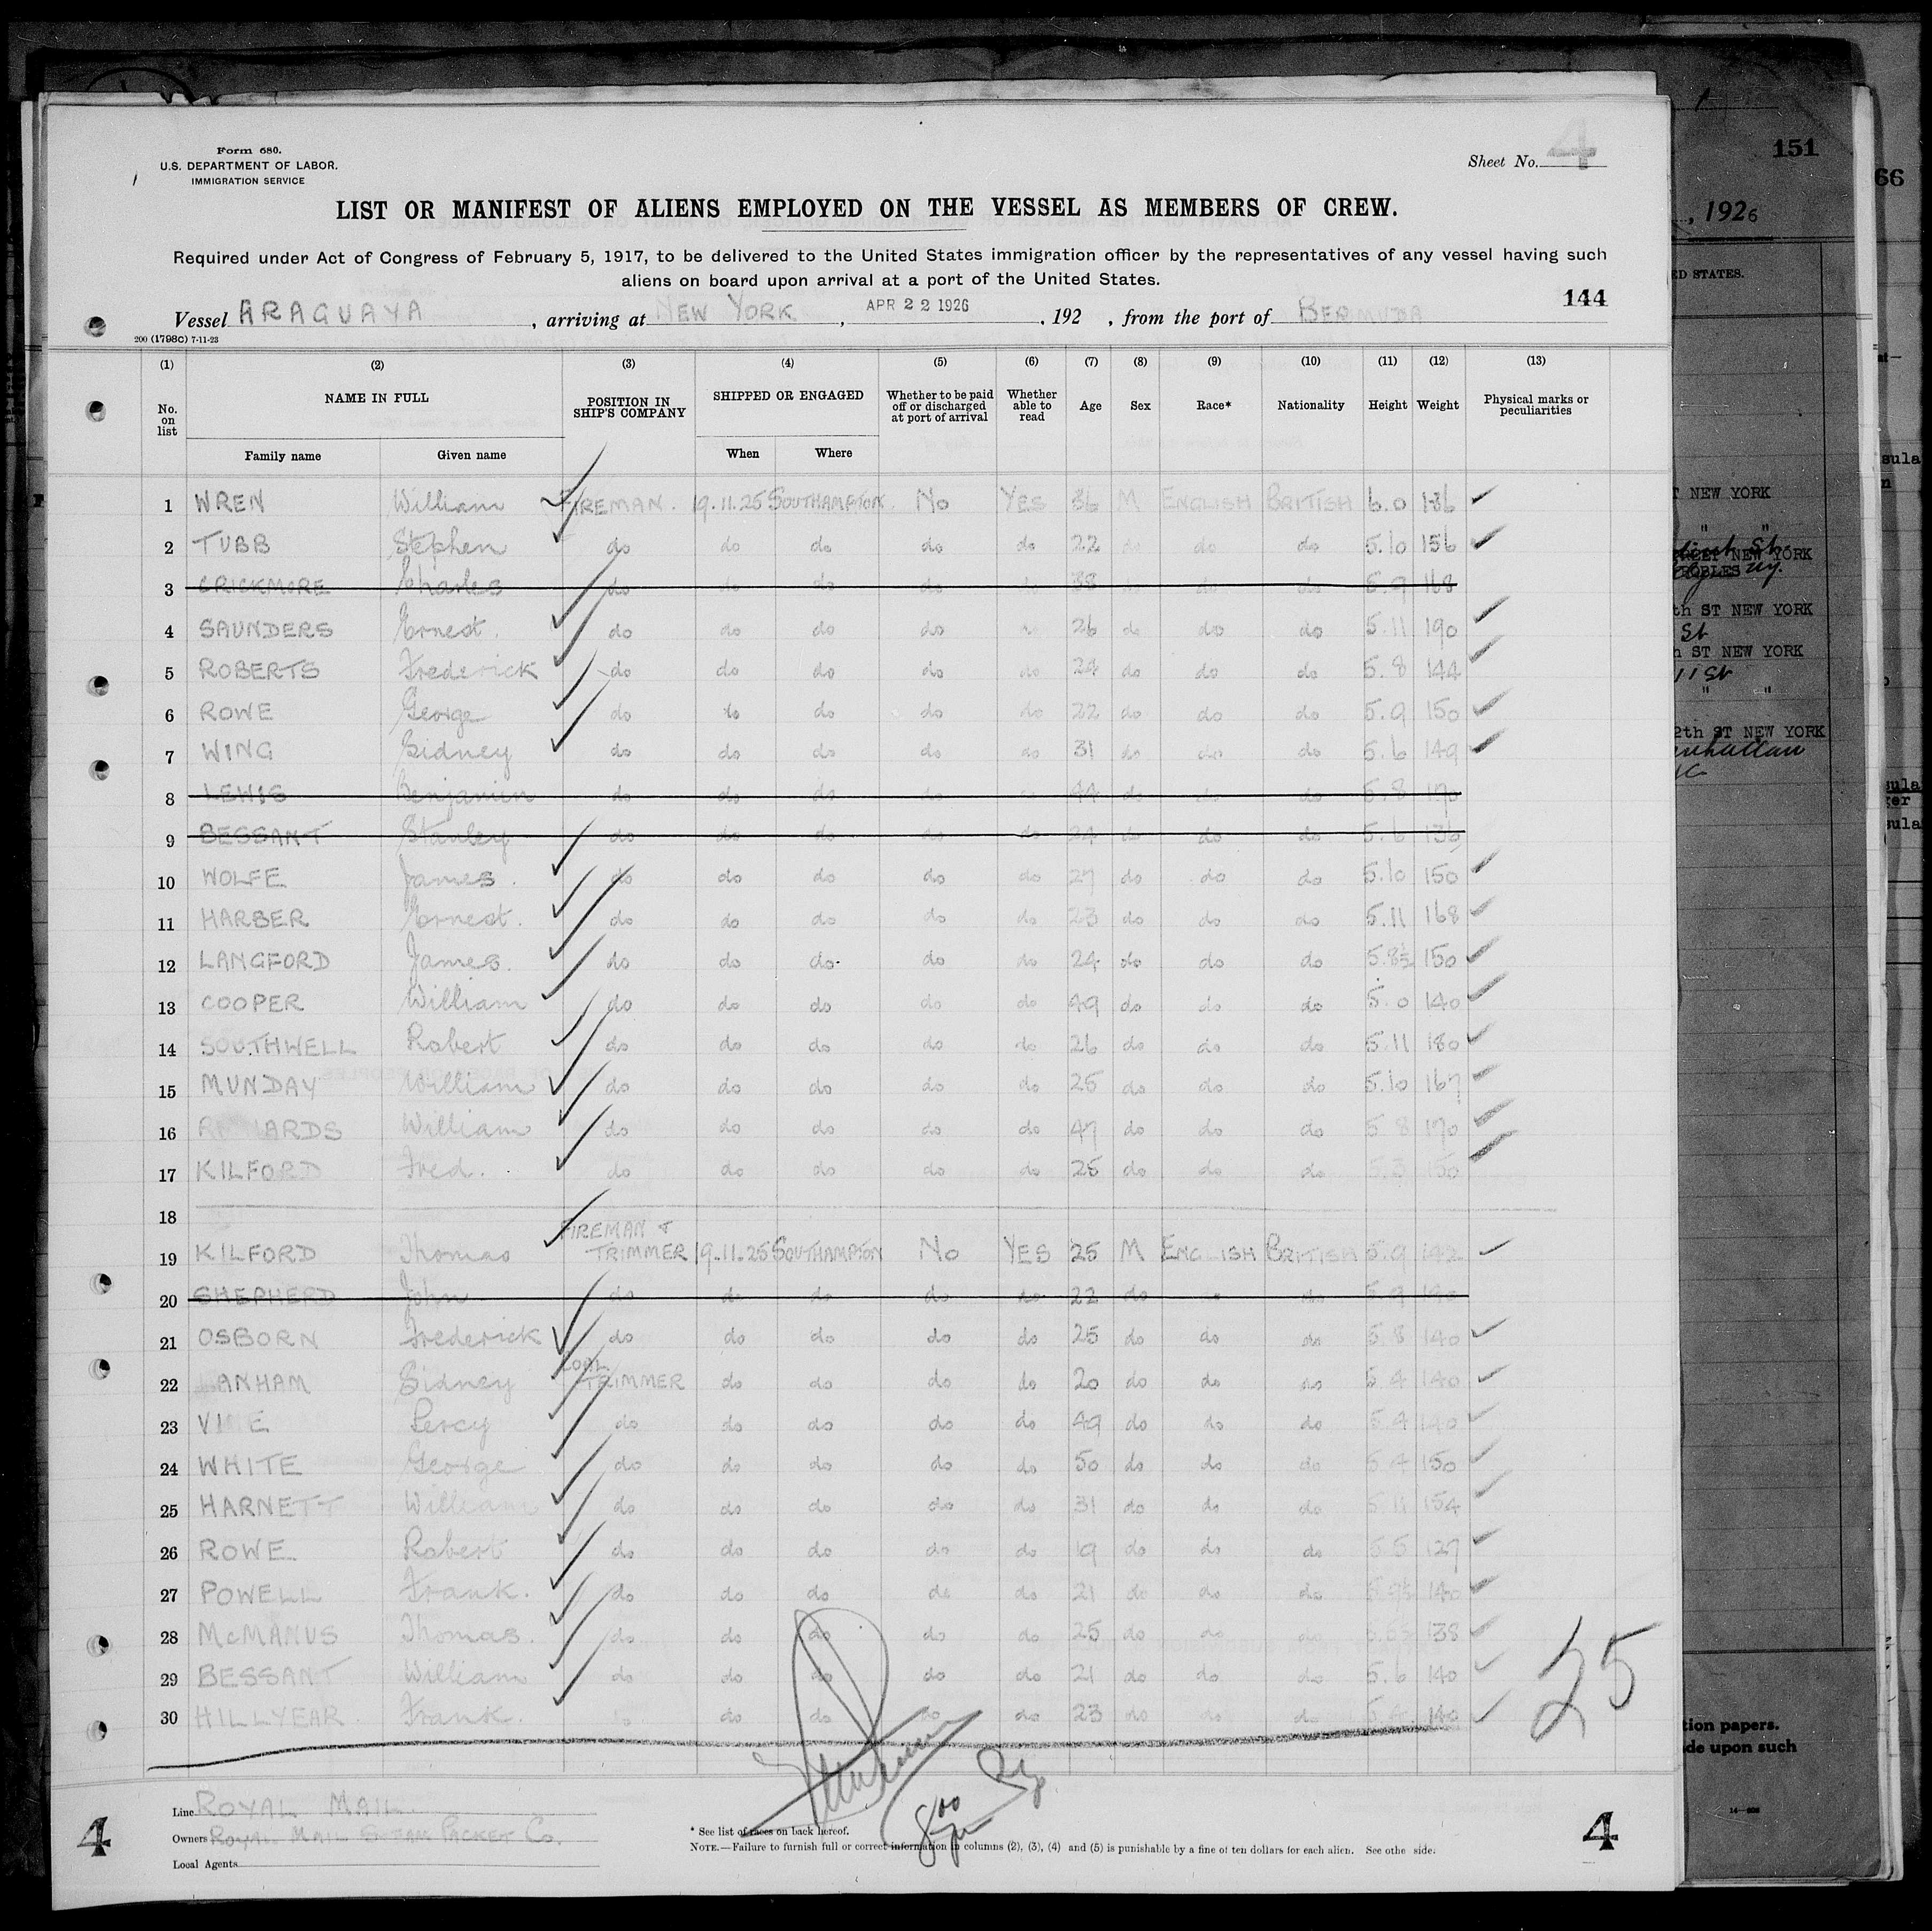 Form 680.
U.S. DEPARTMENT OF LABOR.
IMMIGRATION SERVICE
Sheet No. 4
151
66
, 1926
LIST OR MANIFEST OF ALIENS EMPLOYED ON THE VESSEL AS MEMBERS OF CREW.
Required under Act of Congress of February 5, 1917, to be delivered to the United States immigration officer by the representatives of any vessel having such
aliens on board upon arrival at a port of the United States.
144
Vessel ARAGUAYA, arriving at NEW YORK, APR 22 1926, 192 , from the port of BERMUDA
200 (1798C) 7-11-23
(1) (2) (3) (4) (5) (6) (7) (8) (9) (10) (11) (12) (13)
No. on list NAME IN FULL POSITION IN SHIP'S COMPANY SHIPPED OR ENGAGED Whether to be paid off or discharged at port of arrival Whether able to read Age Sex Race* Nationality Height Weight Physical marks or peculiarities
Family name Given name When Where
1 WREN William FIREMAN. 19.11.25 SOUTHAMPTON. No YES 36 M ENGLISH BRITISH 6.0 186
2 TUBB Stephen do do do do do 22 do do do 5.10 156
3 CRICKMORE Charles do do do do do 38 do do do 5.9 168
4 SAUNDERS Ernest. do do do do 26 do do do 5.11 190
5 ROBERTS Frederick do do do do do 24 do do do 5.8 144
6 ROWE George do do do do do 22 do do do 5.9 150
7 WING Sidney do do do do do 31 do do do 5.6 149
8 LEWIS Benjamin do do do do do 44 do do do 5.8 170
9 BESSANT Stanley do do do do do 24 do do do 5.6 136
10 WOLFE James. do do do do do 27 do do do 5.10 150
11 HARBER Ernest. do do do do do 23 do do do 5.11 168
12 LANGFORD James. do do do do do 24 do do do 5.8½ 150
13 COOPER William do do do do do 49 do do do 5.0 140
14 SOUTHWELL Robert do do do do do 26 do do do 5.11 180
15 MUNDAY William do do do do do 25 do do do 5.10 167
16 William do do do do do 47 do do do 5.8 170
17 KILFORD Fred. do do do do do 25 do do do 5.3 150
18
19 KILFORD Thomas FIREMAN & TRIMMER 19.11.25 SOUTHAMPTON No YES 25 M ENGLISH BRITISH 5.9 142
20 SHEPHERD John do do do do do 22 do do do 5.9
21 OSBORN Frederick do do do do do 25 do do do 5.8 140
22 Sidney COAL TRIMMER do do do do 20 do do do 5.4 140
23 Percy do do do do do 49 do do do 5.4 140
24 WHITE George do do do do do 50 do do do 5.4 150
25 HARNETT William do do do do do 31 do do do 5.11 154
26 ROWE Robert do do do do do 19 do do do 5.5 127
27 POWELL Frank. do do do do do 21 do do do 140
28 McMANUS Thomas. do do do do do 25 do do do 138
29 BESSANT William do do do do do 21 do do do 5.6 140
30 HILLYEAR. Frank. do do do do 23 do do do 5.4 140
25
Line ROYAL MAIL.
Owners ROYAL MAIL STEAM PACKET CO.
Local Agents
4
* See list of races on back hereof.
NOTE.—Failure to furnish full or correct information in columns (2), (3), (4) and (5) is punishable by a fine of ten dollars for each alien. See othe side.
4
800
pm
ED STATES.
NEW YORK
NEW YORK
th ST NEW YORK
St
ST NEW YORK
11 St
2th ST NEW YORK
tion papers.
de upon such